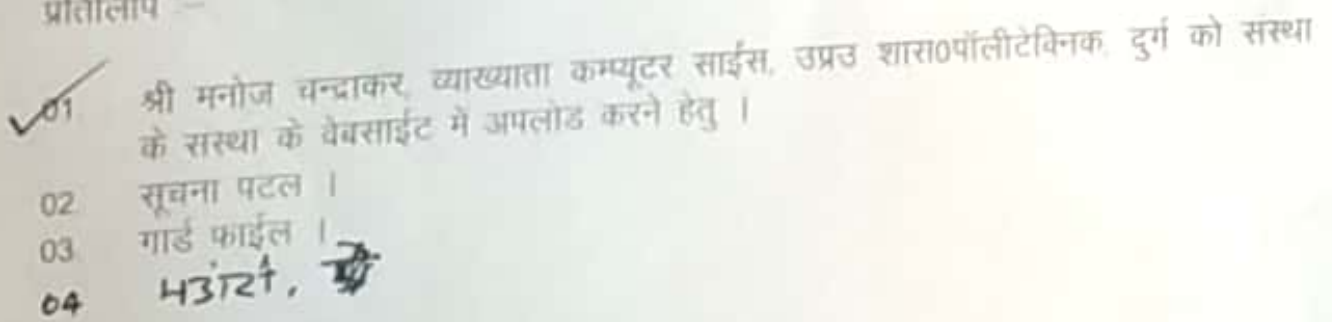 प्रतिलिपि :-
01 श्री मनोज चन्द्राकर, व्याख्याता कम्प्यूटर साईंस, उप्रउ शास0पॉलीटेक्निक, दुर्ग को संस्था
के संस्था के वेबसाईट में अपलोड करने हेतु ।
02 सूचना पटल ।
03 गार्ड फाईल ।
04